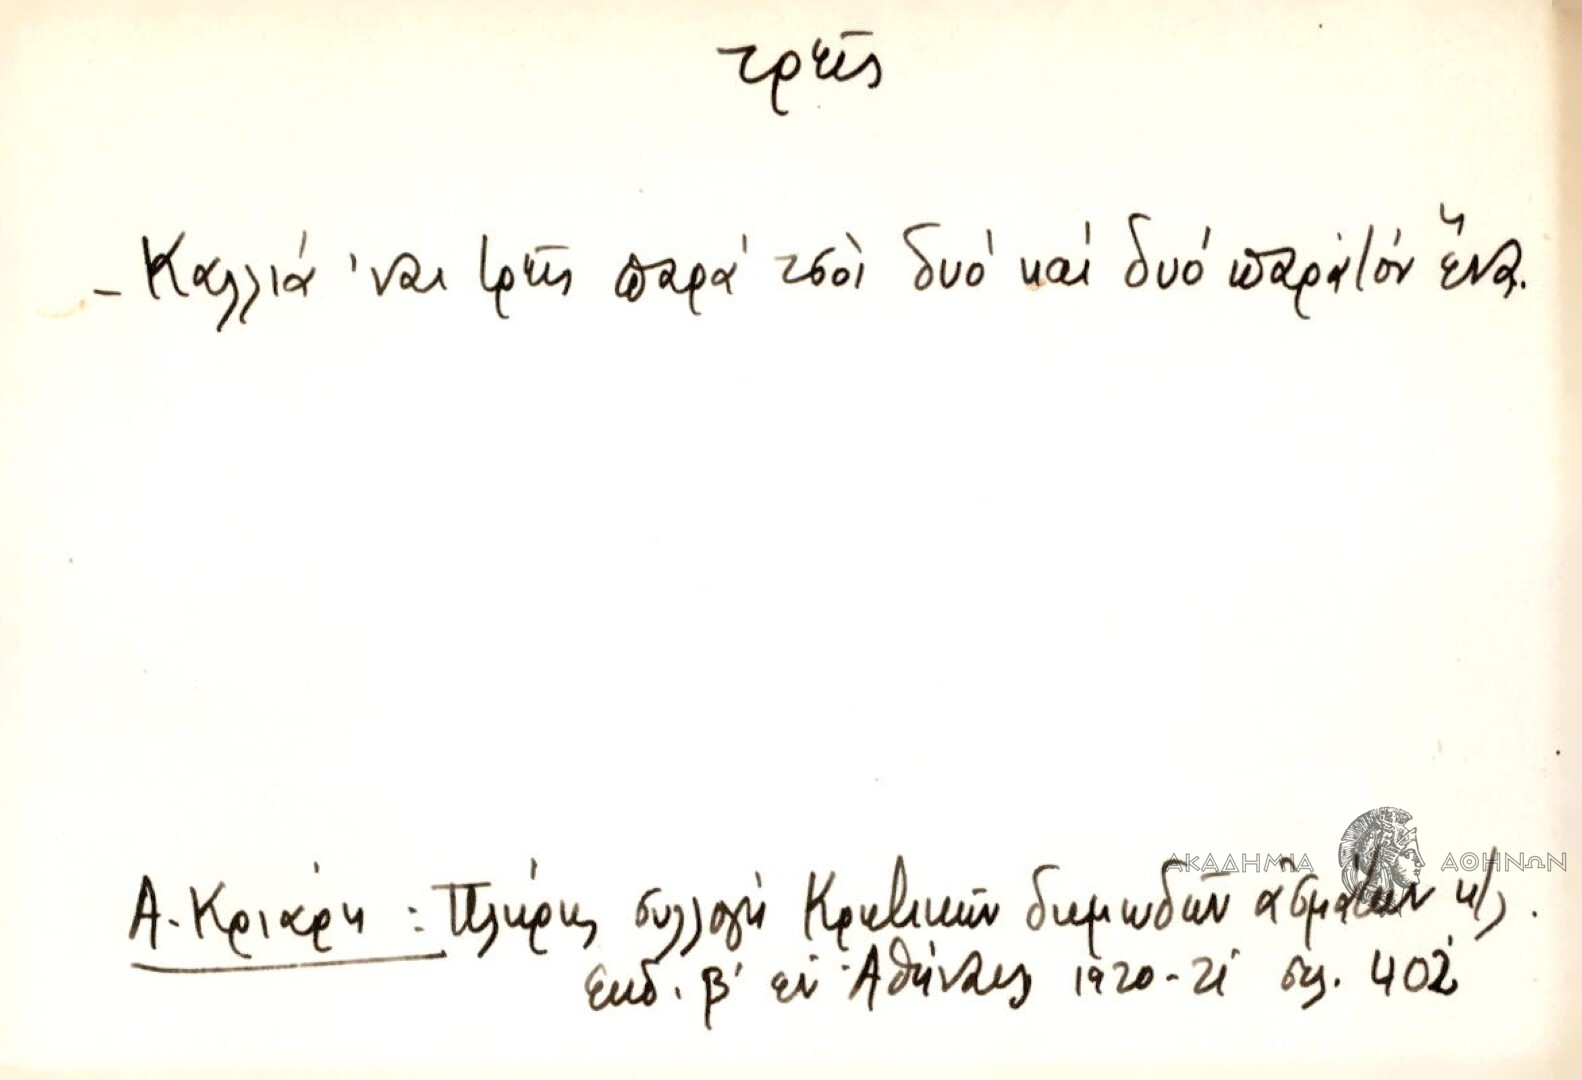 τρεῖς
- Καλλιά 'ναι τρεῖς παρά τσοὶ δυό καί δυό παρά τόν ἕνα.
ΑΚΑΔΗΜΙΑ ΑΘΗΝΩΝ
Α. Κριάρη : Πλήρης συλλογή Κρητικῶν δημωδῶν ἀσμάτων κλ.
ἐκδ. β' ἐν Ἀθήναις 1920-21 σελ. 402